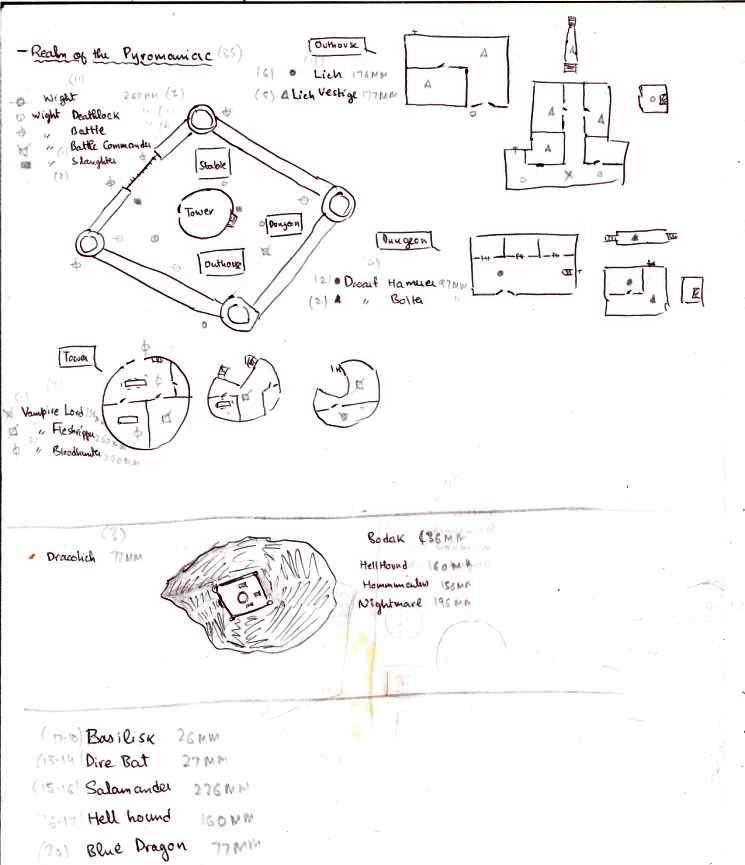 - Realm of the Pyromaniac (SS)
(11)
Wight 260MM (2)
Wight Deathlock "
" Battle "
" Battle Commander
" Slaughter
(2)
Outhouse
(6) • Lich 176MM
(5) △ Lich Vestige 177MM
Stable
Tower
Dungeon
Outhouse
Dungeon
(2) • Dwarf Hammerer 97MM
(2) ▲ " Bolter "
Tower
Vampire Lord
" Fleshripper 260MM
" Bloodhunter
(3)
Dracolich 77MM
Bodak 36MM
Hell Hound 160MM
Hommunculus 158MM
Nightmare 196MM
(17-18) Basilisk 26MM
(13-14) Dire Bat 27MM
(15-16) Salamander 226MM
Hell hound 160MM
(20) Blue Dragon 77MM